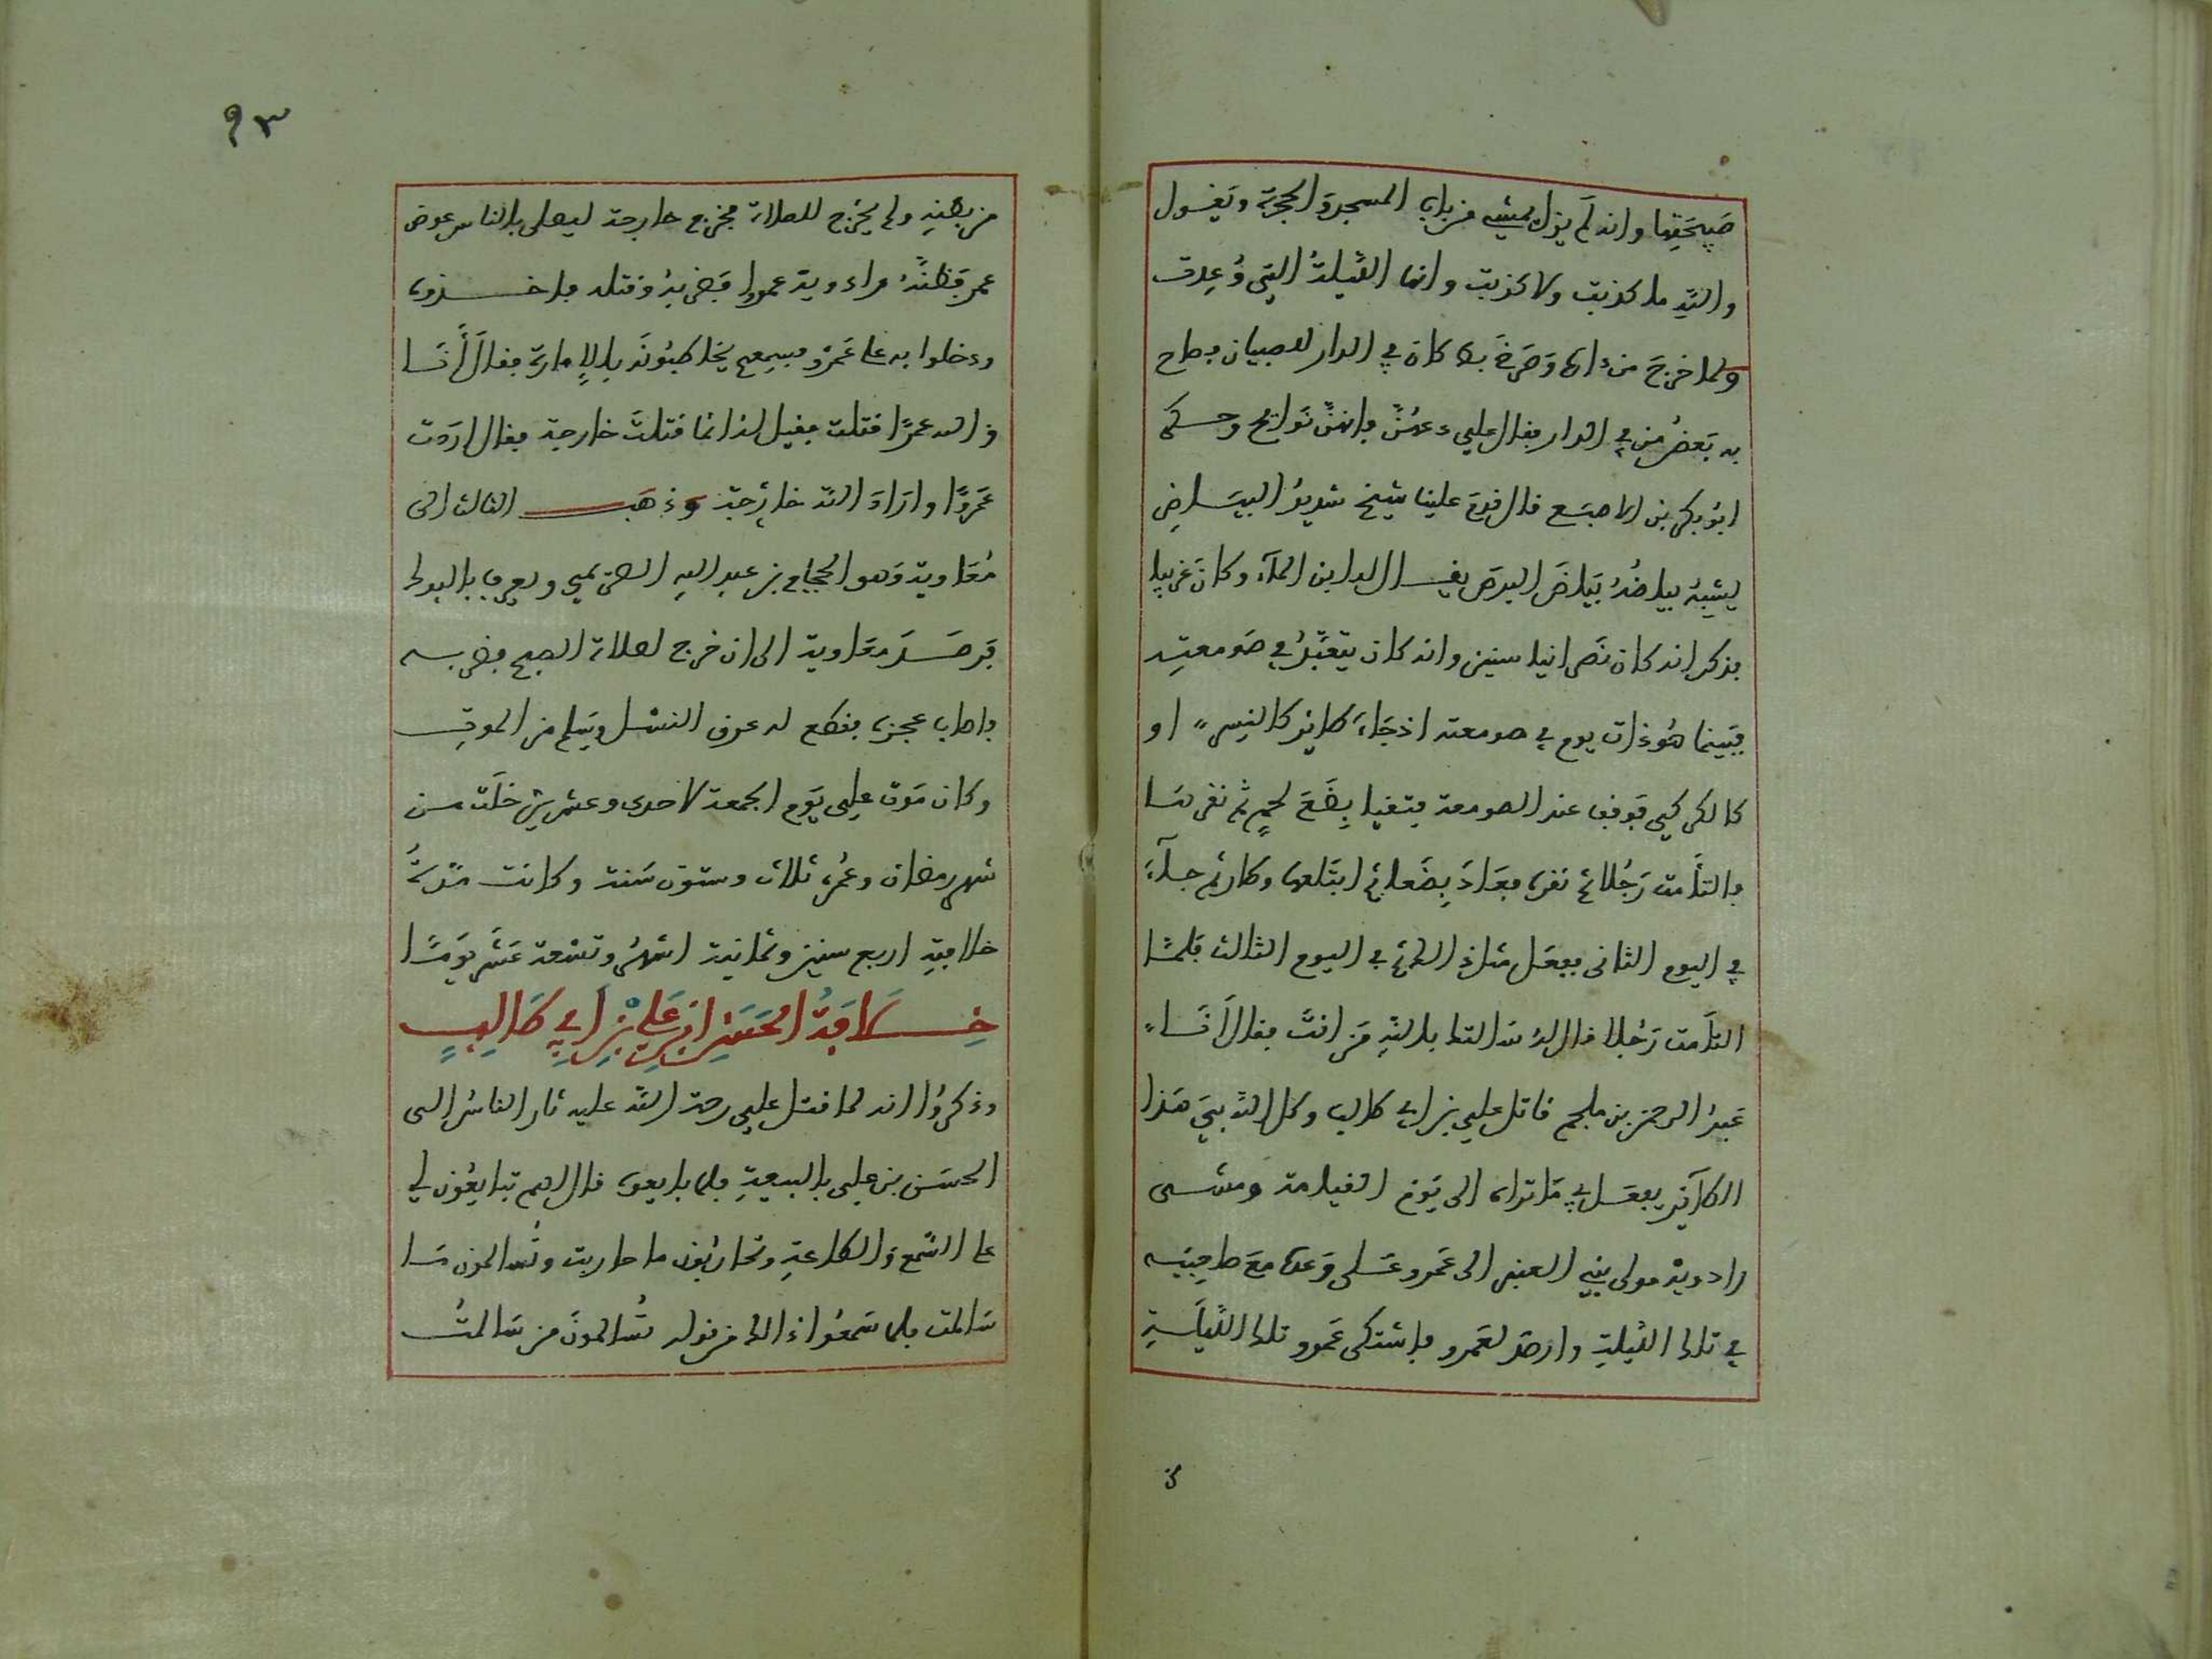 صَبِيحَتِهَا وانه لَم يزل يمشي من باب المسجد والحجرة ويقول
والله ما كذبت ولا كذبت وانها الليلةُ التي وُعِدت
ولما خرجَ من دارها وَصَرخَ بط كان في الدار للصبيان وصاح
به بَعضُ من في الدار فقال علي دعهُنَّ فإنهنَّ نَوائح وحكى
ابو بكر بن الاصبَع قال قدمَ علينا شيخ شديدُ البيَاضِ
يشبهُ بياضُهُ بَيَاضَ البرَص يقال له ابن الماء وكانَ غريبا
فذكر انه كان نَصرانيا سنين وانه كان يَتعَبَّدُ في صَومعتِه
فبَينما هُوَ ذات يوم في صومعته اذ جَاءَ طاير كالنسر او
كالكركي فوقف عند الصومعة فتقيا بِضَعَ لحمٍ ثم نقرهَا
فالتأمت رَجُلا ثم نقره فعَادَ بِضَعا ثم ابتَلعها وطار ثم جاءَ
في اليوم الثانى ففعَل مثل ذلك ثم في اليوم الثالث فلمَّا
التأمت رَجُلا قال له سَالتك بالله مَن انتَ فقال أنَا
عَبدُ الرحمن بن ملجم قاتل علي بن ابي طالب وكل الله بيَ هَذا
الطَآئِر يفعَل بي مَا تراه الى يَوْمِ القيامة ومشى
زادويْه مولى بني العنبر الى عَمرو عَلى وَعدها مَعَ صاحبَيه
في تلك الليلةِ وارصَد لعَمرو فاشتكى عَمرو تلك الليلةِ
٩٣
من بطنهِ ولم يخرج للصلاة فخرج خارجة ليصلى بالناس عوض
عمر فظنَّهُ زادويه عمروا فضربهُ وقتله فاخذوه
ودخلوا به على عَمرْو فسمِعهم يخاطبُونَه بالإمارة فقالَ أنَا
والله عمرًا قتلت فقيل له انما قتلتَ خارجة فقال اردت
عَمروًا وارَادَ الله خارجَة وذهَب الثالث الى
مُعَاوية وَهو الحجاج بن عبد الله الصريمي ويعرف بالبرك
فرصَدَ معَاوية الى ان خرج لصلاة الصبح فضربه
فاصاب عجزه فقطع له عرق النسْل وسَلم من الموت
وكان مَوت علِي يَوم الجمعة لاحدى وعشرين خلَت من
شهر رمضان وعُمره ثلاث وستون سَنة وكانت مدَّتُه
خلافته اربع سنين وثمانية اشهُر وتسْعة عَشَر يَومًا
خِلَافةُ الحَسَنِ ابنِ عَلِيّ بْنِ أبِي طَالِبٍ
وذكرُوا انه لما قتل علي رحمة الله عليه ثار الناسُ الى
الحسَن بن علِي بالبيعةِ فلما بايعوه قال لهم تبايعُون لي
على السَّمع وَالطاعةِ وتحاربُون من حاربت وتُسالمون مَن
سَالمت فلما سَمعُوا ذلك من قوله تُسَالمونَ من سَالمتُ